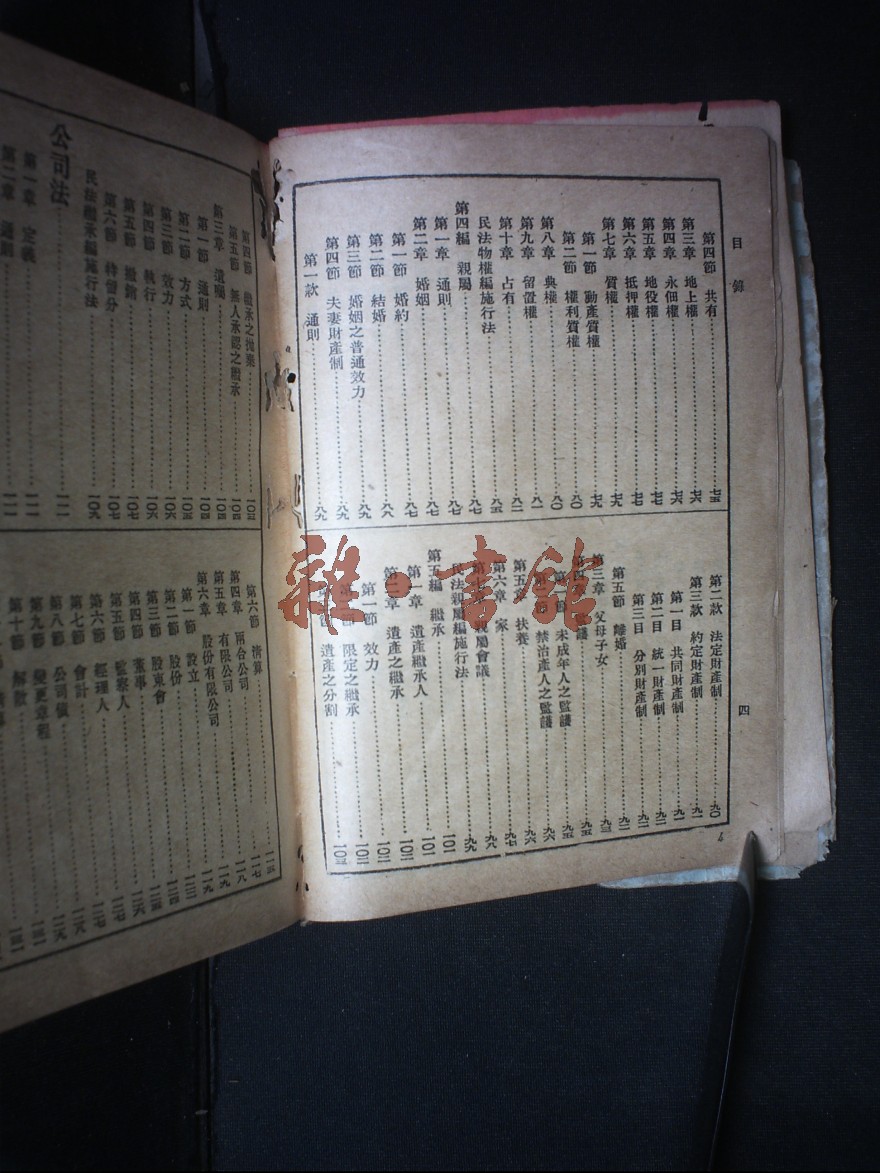 目錄
第四節 共有 七五
第三章 地上權 七六
第四章 永佃權 七六
第五章 地役權 七七
第六章 抵押權 七七
第七章 質權 七九
第一節 動產質權 七九
第二節 權利質權 八〇
第八章 典權 八〇
第九章 留置權 八一
第十章 占有 八二
民法物權編施行法 八五
第四編 親屬 八七
第一章 通則 八七
第二章 婚姻 八七
第一節 婚約 八七
第二節 結婚 八八
第三節 婚姻之普通效力 八九
第四節 夫妻財產制 八九
第一款 通則 八九
四
第二款 法定財產制 九〇
第三款 約定財產制 九一
第一目 共同財產制 九一
第二目 統一財產制 九二
第三目 分別財產制 九二
第五節 離婚 九二
第三章 父母子女 九三
第四章 監護 九五
第一節 未成年人之監護 九五
第二節 禁治產人之監護 九六
第五章 扶養 九六
第六章 家 九七
第七章 親屬會議 九八
民法親屬編施行法 九九
第五編 繼承 一〇一
第一章 遺產繼承人 一〇一
第二章 遺產之繼承 一〇二
第一節 效力 一〇二
第二節 限定之繼承 一〇二
第三節 遺產之分割 一〇三
第四節 繼承之拋棄 一〇三
第五節 無人承認之繼承 一〇四
第三章 遺囑 一〇四
第一節 通則 一〇四
第二節 方式 一〇五
第三節 效力 一〇六
第四節 執行 一〇六
第五節 撤銷 一〇七
第六節 特留分 一〇七
民法繼承編施行法 一〇九
公司法 一一一
第一章 定義 一一一
第二章 通則 一一一
第六節 清算 一一五
第四章 兩合公司 一一七
第五章 有限公司 一一八
第六章 股份有限公司 一一九
第一節 設立 一一九
第二節 股份 一二二
第三節 股東會 一二四
第四節 董事 一二五
第五節 監察人 一二六
第六節 經理人 一二七
第七節 會計 一二七
第八節 公司債 一二八
第九節 變更章程
第十節 解散
雜·書館